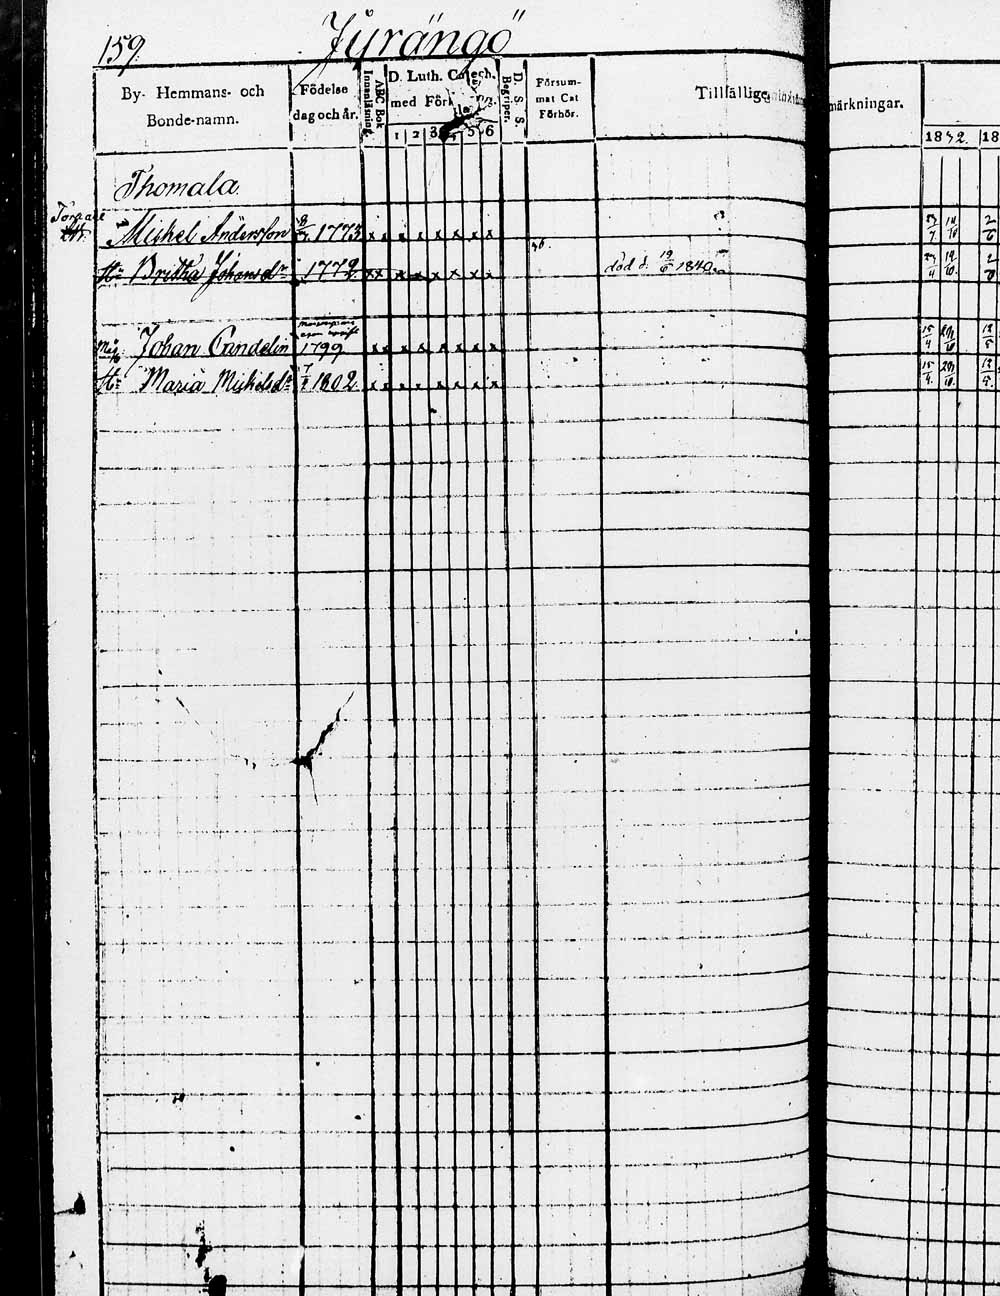 159. Jÿrängö
By- Hemmans- och Bonde-namn.
Födelse dag och år.
ABC Bok Innanläsning.
D. Luth. Catech. med Förkl.
1 2 3 4 5 6
D. S. S. Begriper.
Försum-mat Cat Förhör.
Tillfällige anmärkningar.
1832. 18
Thomala
Michel Andersson 1773 x x x x x x x x
Hu Britha Johansdr 1772 x x x x x x x x död d. 19/6 1840
Måg Johan Candelin 1799 x x x x x x x x
Hu Maria Michelsdr 1802 x x x x x x x x